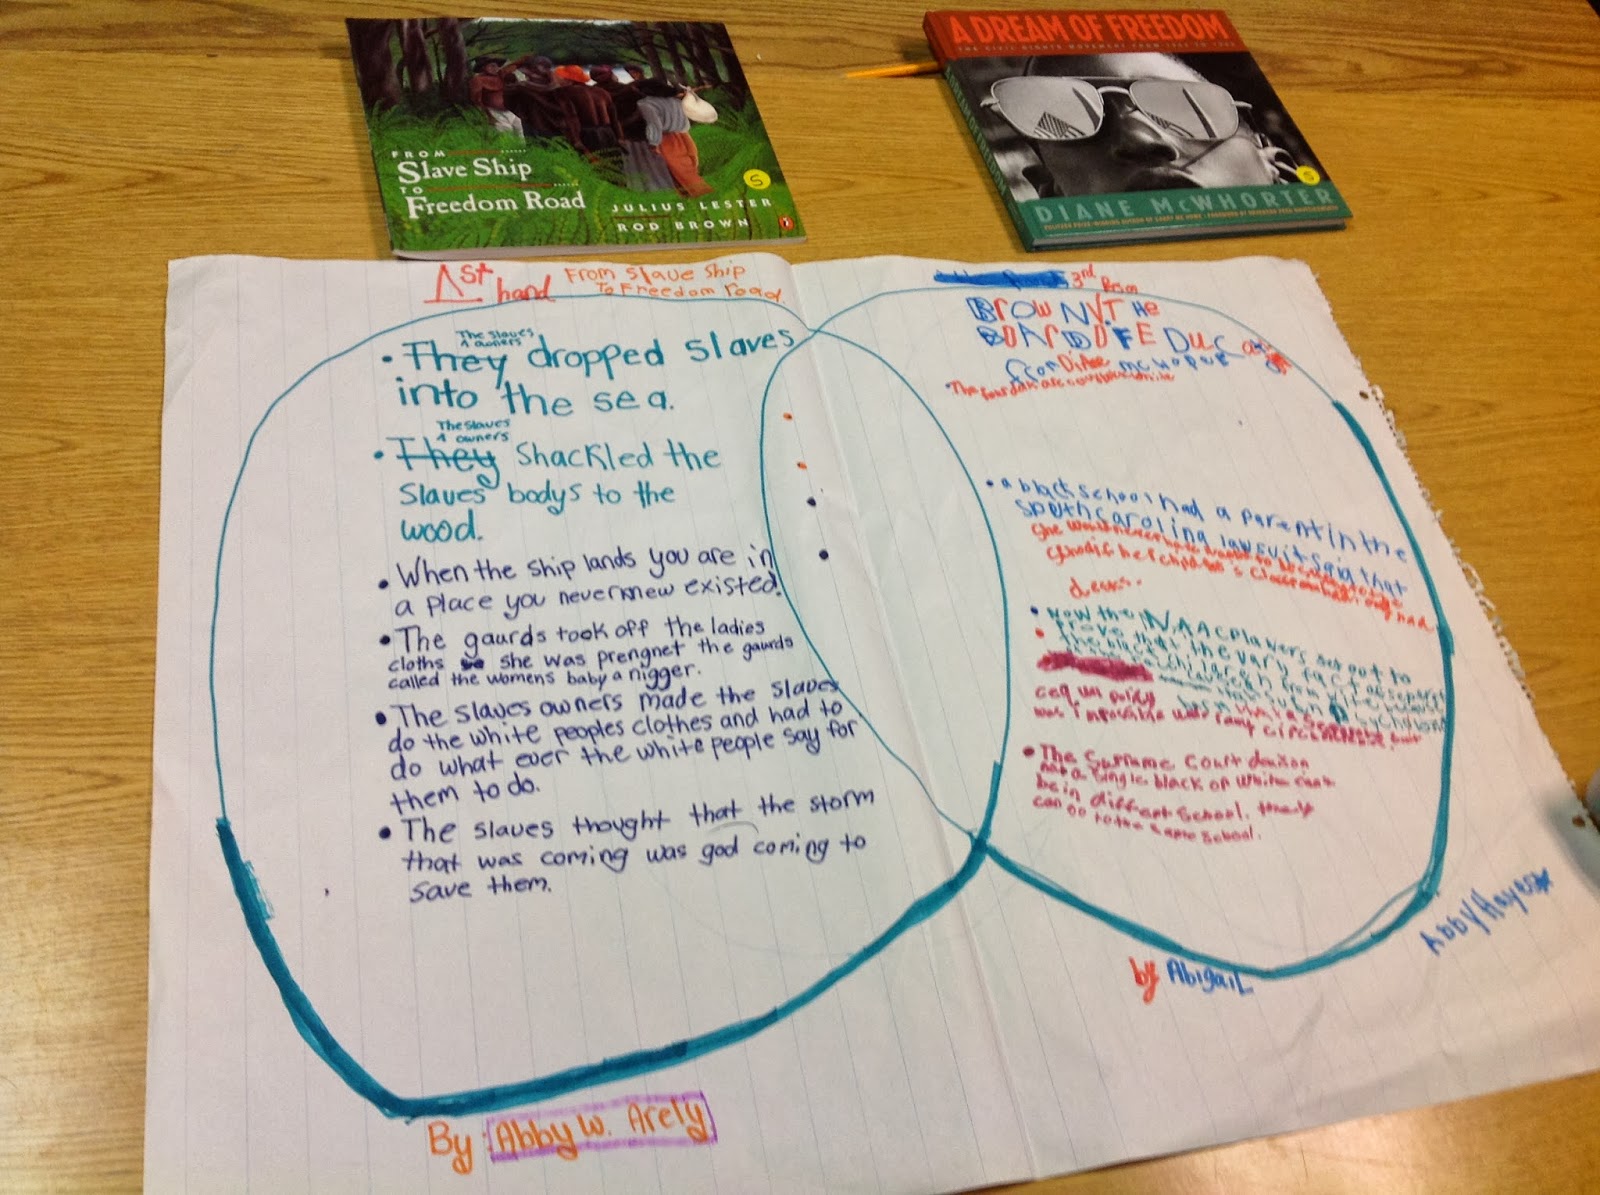 FROM
Slave Ship
TO
Freedom Road
JULIUS LESTER
ROD BROWN
S
A DREAM OF FREEDOM
THE CIVIL RIGHTS MOVEMENT FROM 1954 TO 1968
DIANE McWHORTER
S
1st hand
From Slave Ship
To Freedom road
• The Slaves owners
They dropped slaves
into the sea.
• The Slaves owners
They Shackled the
Slaves bodys to the
wood.
• When the ship lands you are in
a place you never knew existed.
• The gaurds took off the ladies
cloths she was prengnet the gaurds
called the womens baby a nigger.
• The slaves owners made the slaves
do the white peoples clothes and had to
do what ever the white people say for
them to do.
• The slaves thought that the storm
that was coming was god coming to
save them.
By: Abby W. Arely
3rd
BROWN V.T He
BOARD OF EDUC
from Diane
• a black school had a parent in the
South carolina lawsuit said that
• Now the NAACP lawyers set out to
prove that the vary fact of
was impossible
• The Surpume Court
not a single black or white can
be in different school. they
can go to the same school.
by Abigail
Abby Hayes